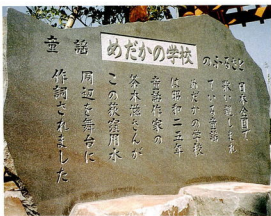 童謡 めだかの学校 のふるさと
日本全国で
歌い親しまれ
ている童謡
めだかの学校
は昭和二五年
童謡作家の
茶木滋さんが
この荻窪用水
周辺を舞台に
作詞されました